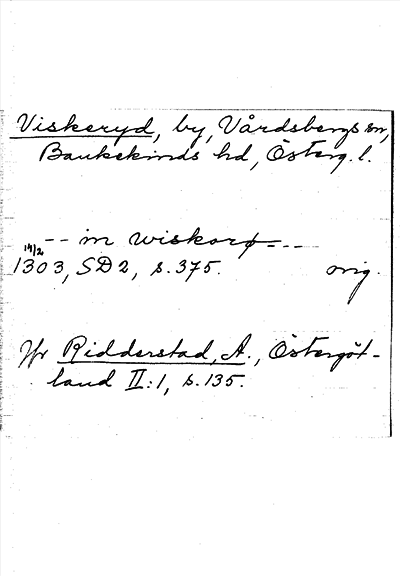 Viskeryd, by, Vårdsbergs sn,
Bankekinds hd, Österg. l.
-- in wiskorø---
14/2
1303, SD 2, s. 375. orig.
Jfr Ridderstad, A., Östergöt-
land II:1, s. 135.